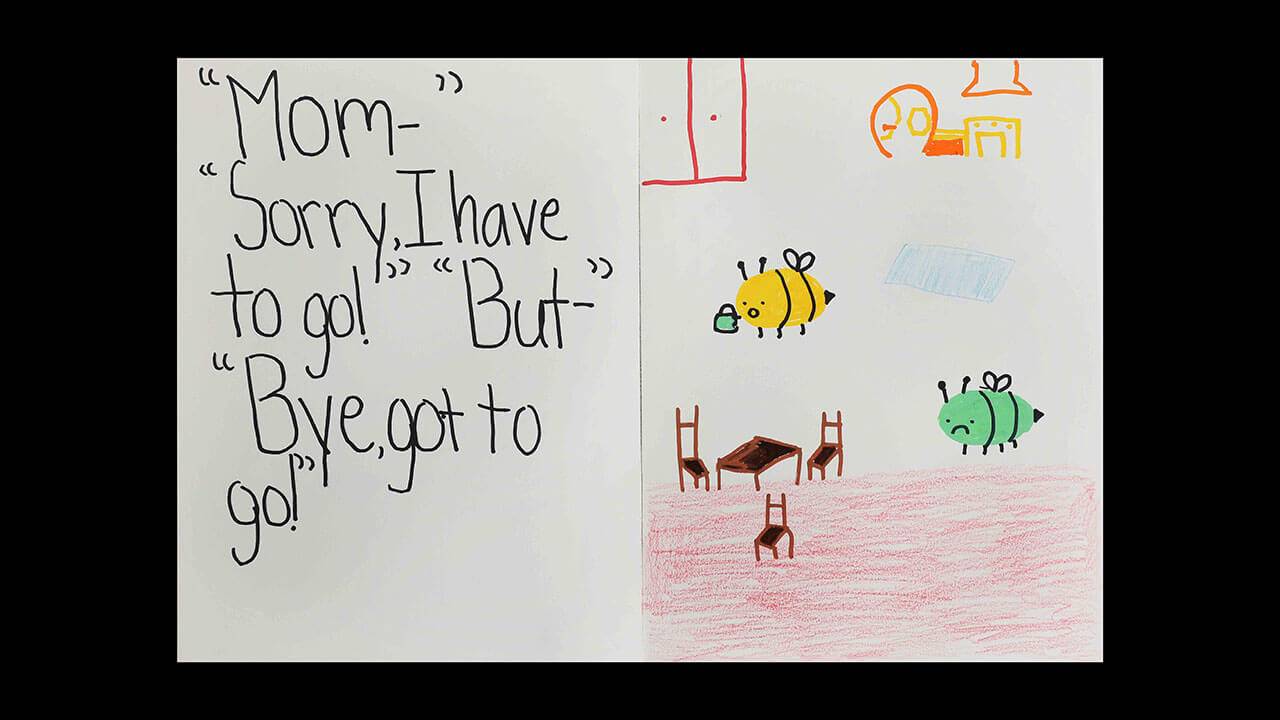 “Mom-”
“Sorry, I have
to go!” “But-”
“Bye, got to
go!”